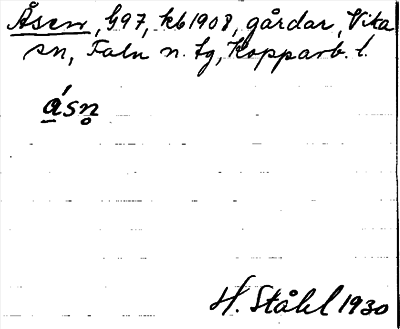 Åsen, G97, kb 1908, gårdar, Vika
sn, Falu n. tg, Kopparb. l.
a̲´sn̥
H. Ståhl 1930